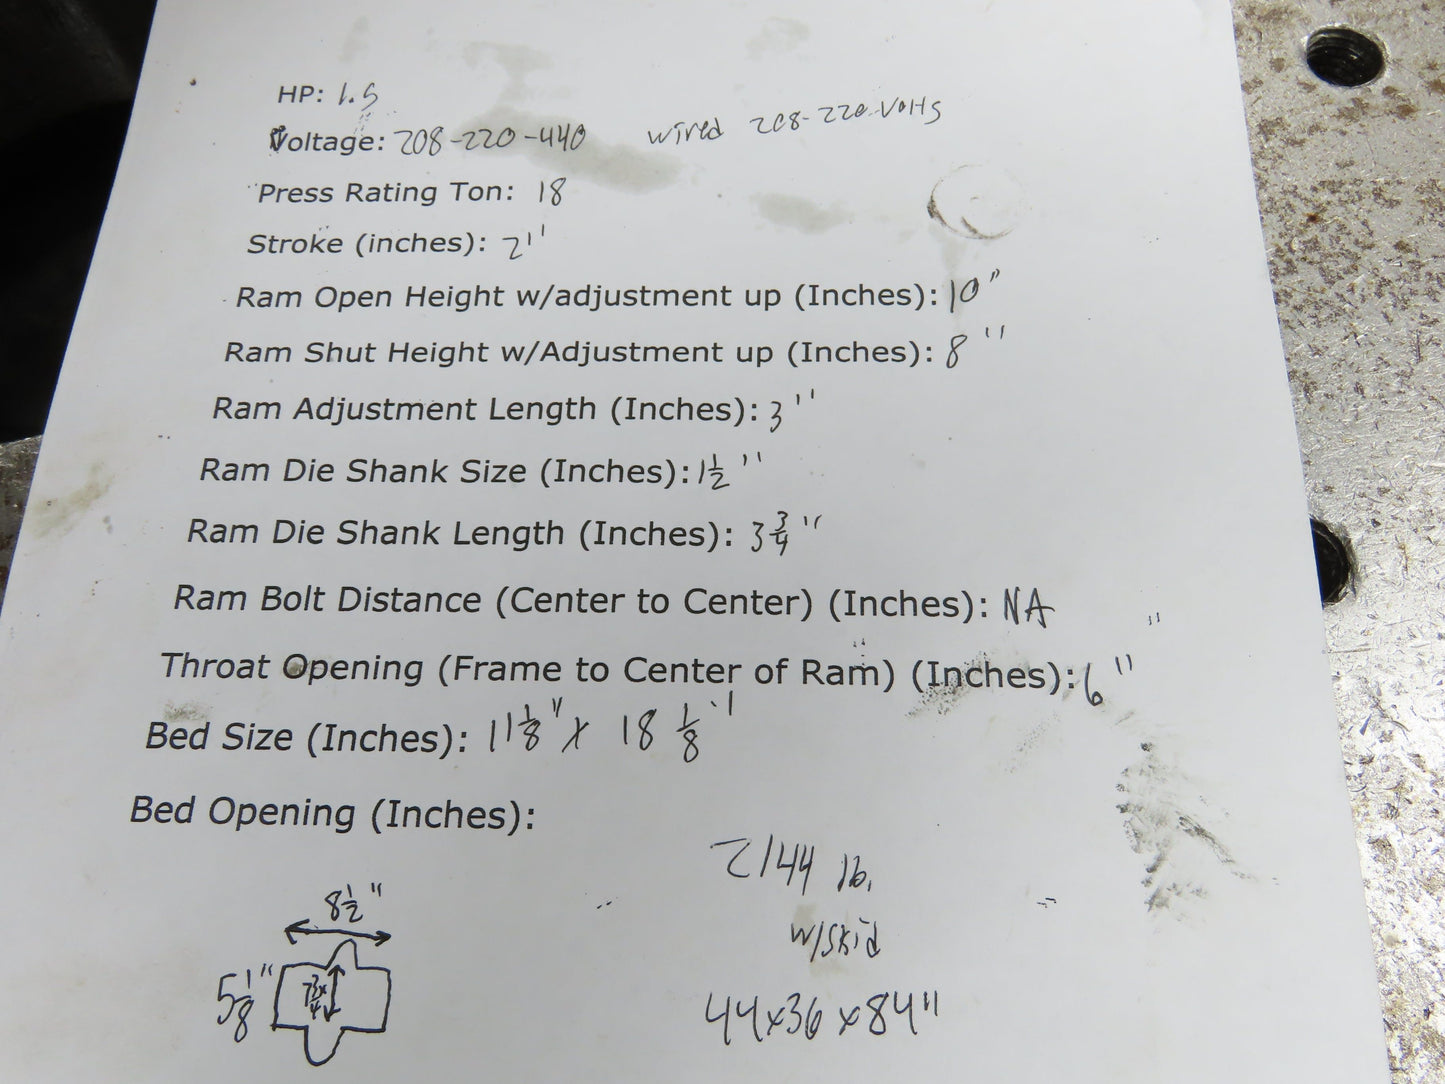 HP: 1.5
Voltage: 208-220-440 wired 208-220-Volts
Press Rating Ton: 18
Stroke (inches): 2"
Ram Open Height w/adjustment up (Inches): 10"
Ram Shut Height w/Adjustment up (Inches): 8"
Ram Adjustment Length (Inches): 3"
Ram Die Shank Size (Inches): 1 1/2"
Ram Die Shank Length (Inches): 3 3/4"
Ram Bolt Distance (Center to Center) (Inches): NA
Throat Opening (Frame to Center of Ram) (Inches): 6"
Bed Size (Inches): 11 1/8" x 18 1/8"
Bed Opening (Inches):
2144 lb.
w/skid
44x36x84"
8 1/2"
5 1/8"
7 3/4"